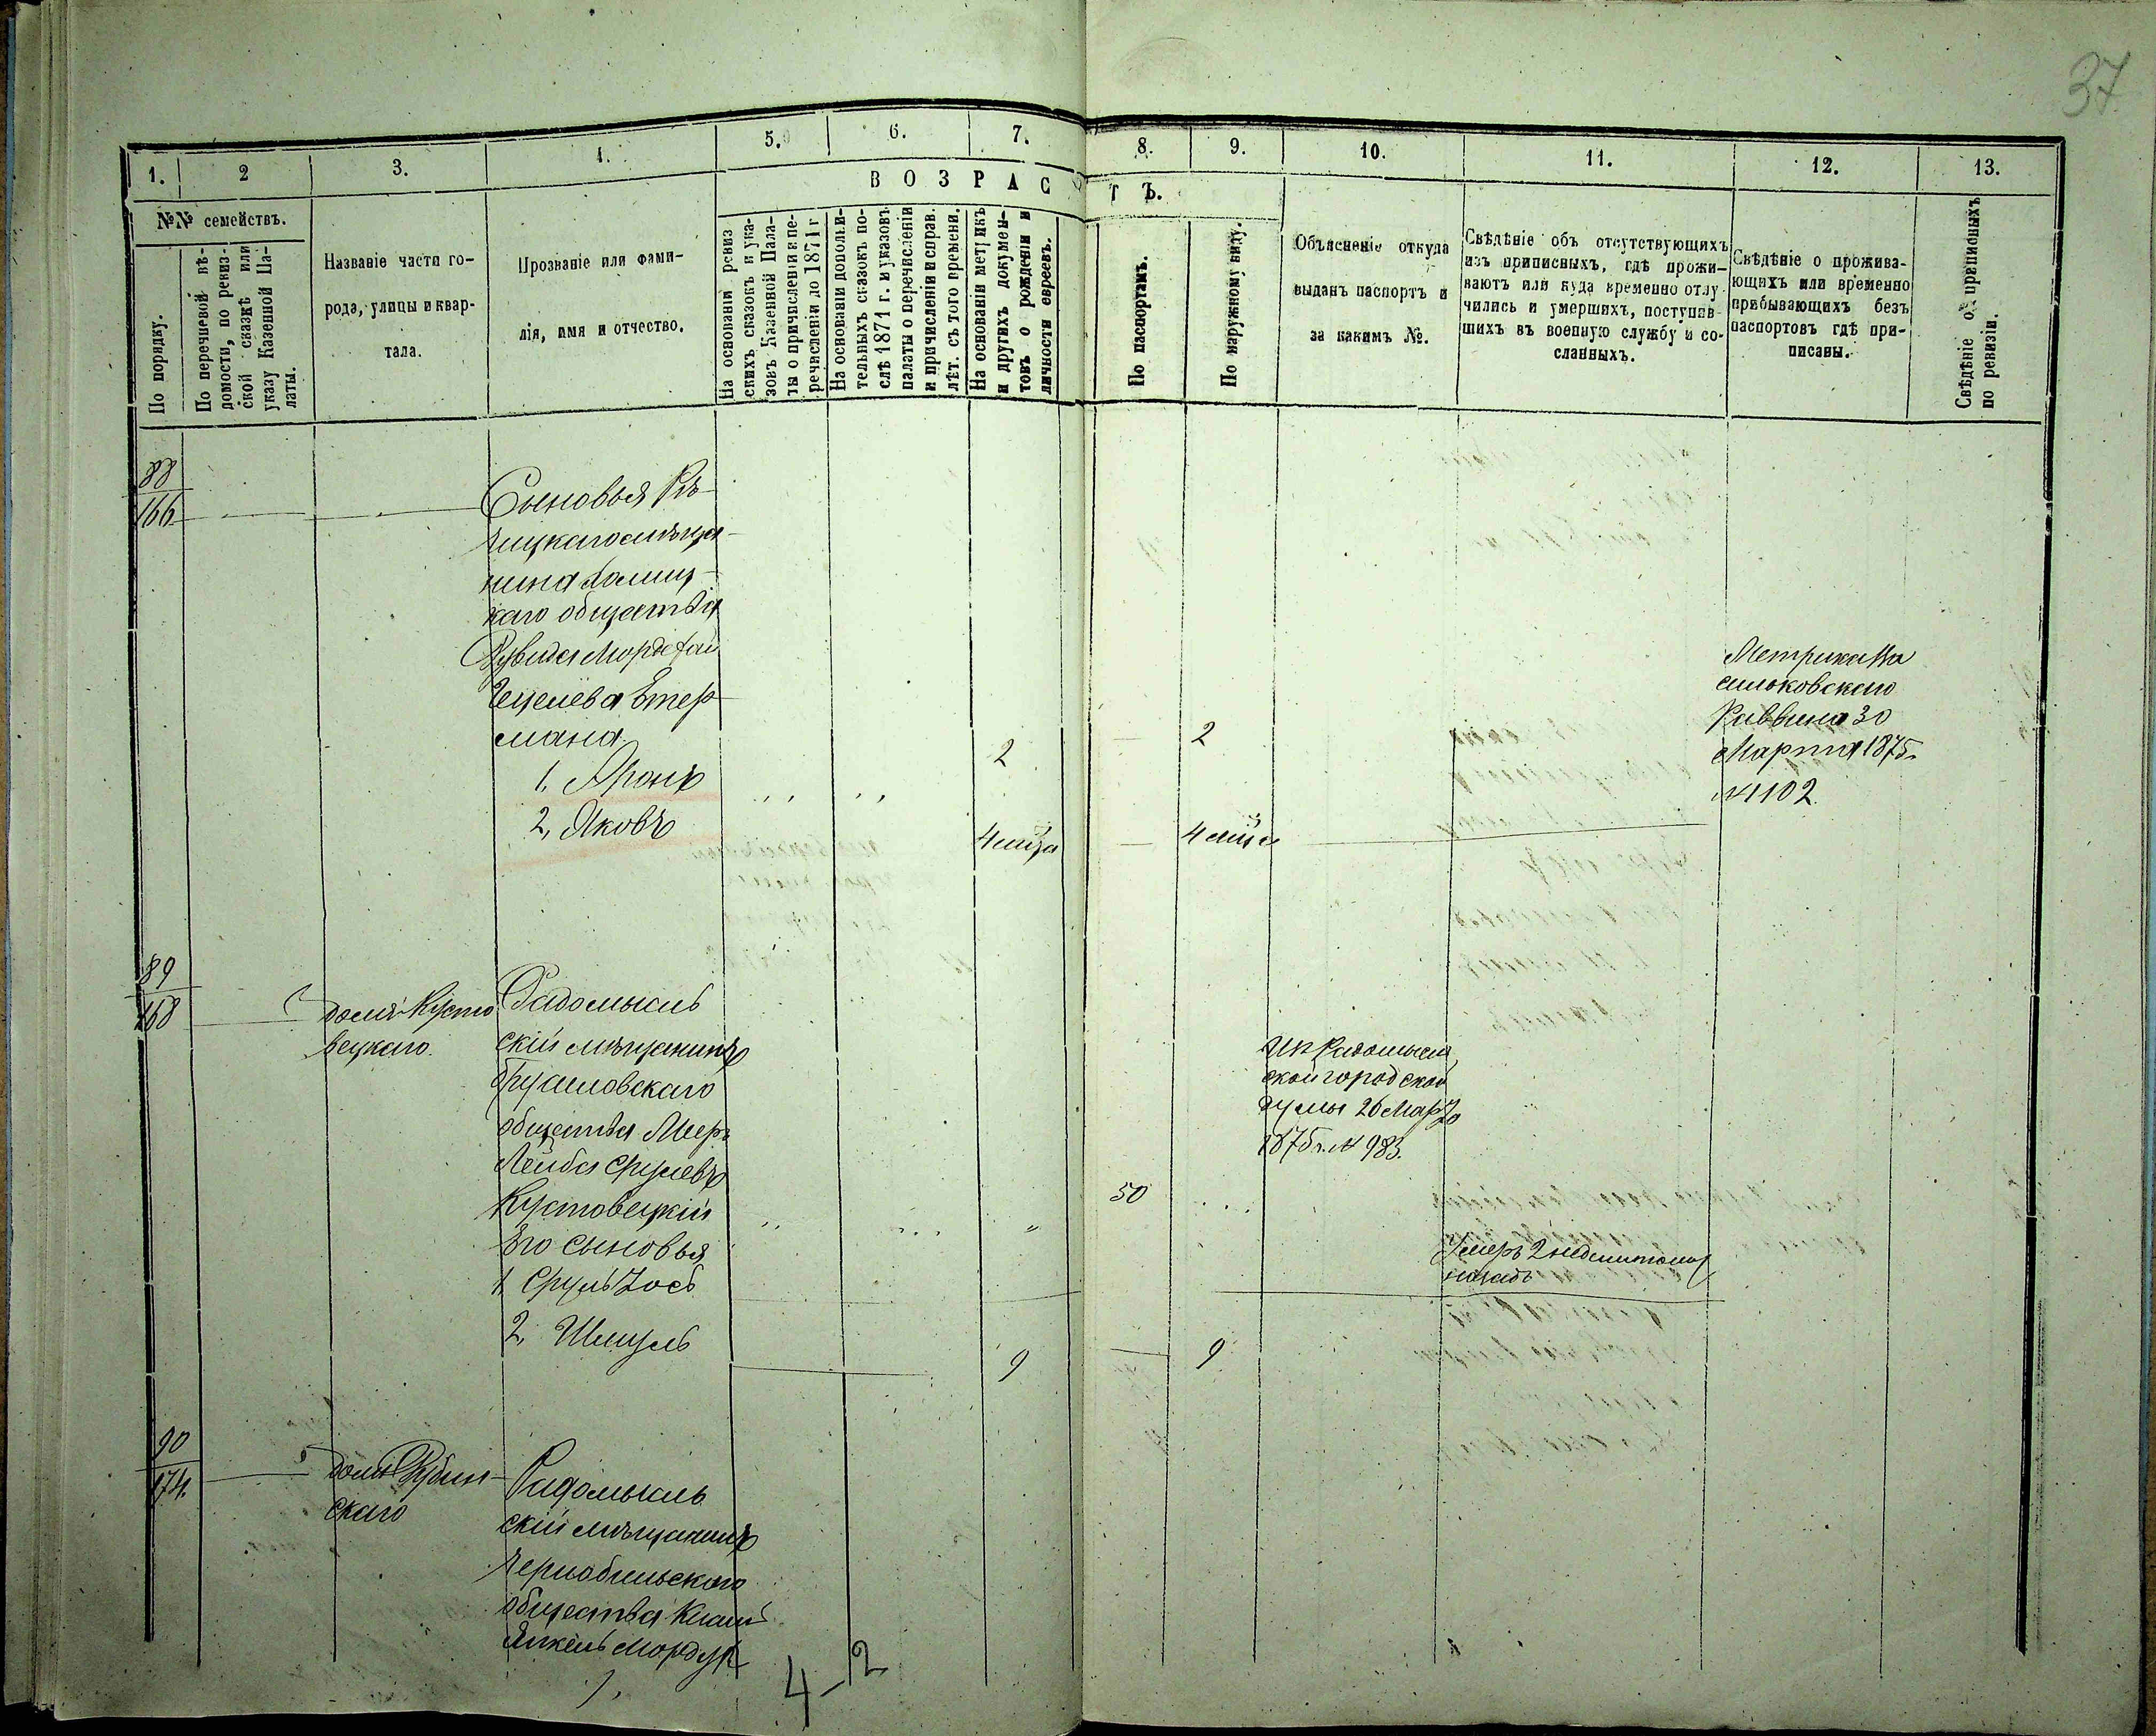 37
1.
2
3.
4.
5.
6.
7.
8.
9.
10.
11.
12.
13.
ВОЗРАСТЪ.
№№ семействъ.
По порядку.
По перечневой вѣ-
домости, по ревиз-
ской сказкѣ или
указу Казенной Па-
латы.
Названіе части го-
рода, улицы и квар-
тала.
Прозваніе или фами-
лія, имя и отчество.
На основаніи ревиз
скихъ сказокъ и ука-
зовъ Казенной Пала-
ты о причисленіи и пе-
речисленіи до 1871 г
На основаніи дополни-
тельныхъ сказокъ по-
слѣ 1871 г. и указовъ
палаты о перечисленіи
и причисленіи и справ.
лѣт. съ того времени.
На основаніи метрикъ
и другихъ докумен-
товъ о рожденіи и
личности евреевъ.
По паспортамъ.
По наружному виду.
Объясненіе откуда
выданъ паспортъ и
за какимъ №.
Свѣдѣніе объ отсутствующихъ
изъ приписныхъ, гдѣ прожи-
ваютъ или куда временно отлу
чились и умершихъ, поступив-
шихъ въ военную службу и со-
сланныхъ.
Свѣдѣніе о прожива-
ющихъ или временно
прибывающихъ безъ
паспортовъ гдѣ при-
писаны.
Свѣдѣніе о приписныхъ
по ревизіи.
88
166
Сыновья Рѣ-
чицкаго мѣща-
нина
каго общества
Рувида Мордхай
Гецелева Етер
мана
1, Аронъ
2
2
2, Яковъ
4 мца
4 мца
Метрика Ва
сильковскаго
Раввина 30
Марта 1875 г.
№ 1102.
89
168
домъ Кусто
вецкаго.
Радомысль
скій мѣщанинъ
Брусиловскаго
общества Меер
Лейба Срулевъ
Кустовецкій
50
Его сыновья
1, Сруль Іось
2, Шмуль
9
9
Из Радомысль
ской городской
думы 26 Марта
1875 г. № 983.
Умеръ 2
назадъ
90
174.
домъ Рубин
скаго
Радомысль
скій мѣщанинъ
Чернобыльскаго
общества
Янкель Мордух
4-2